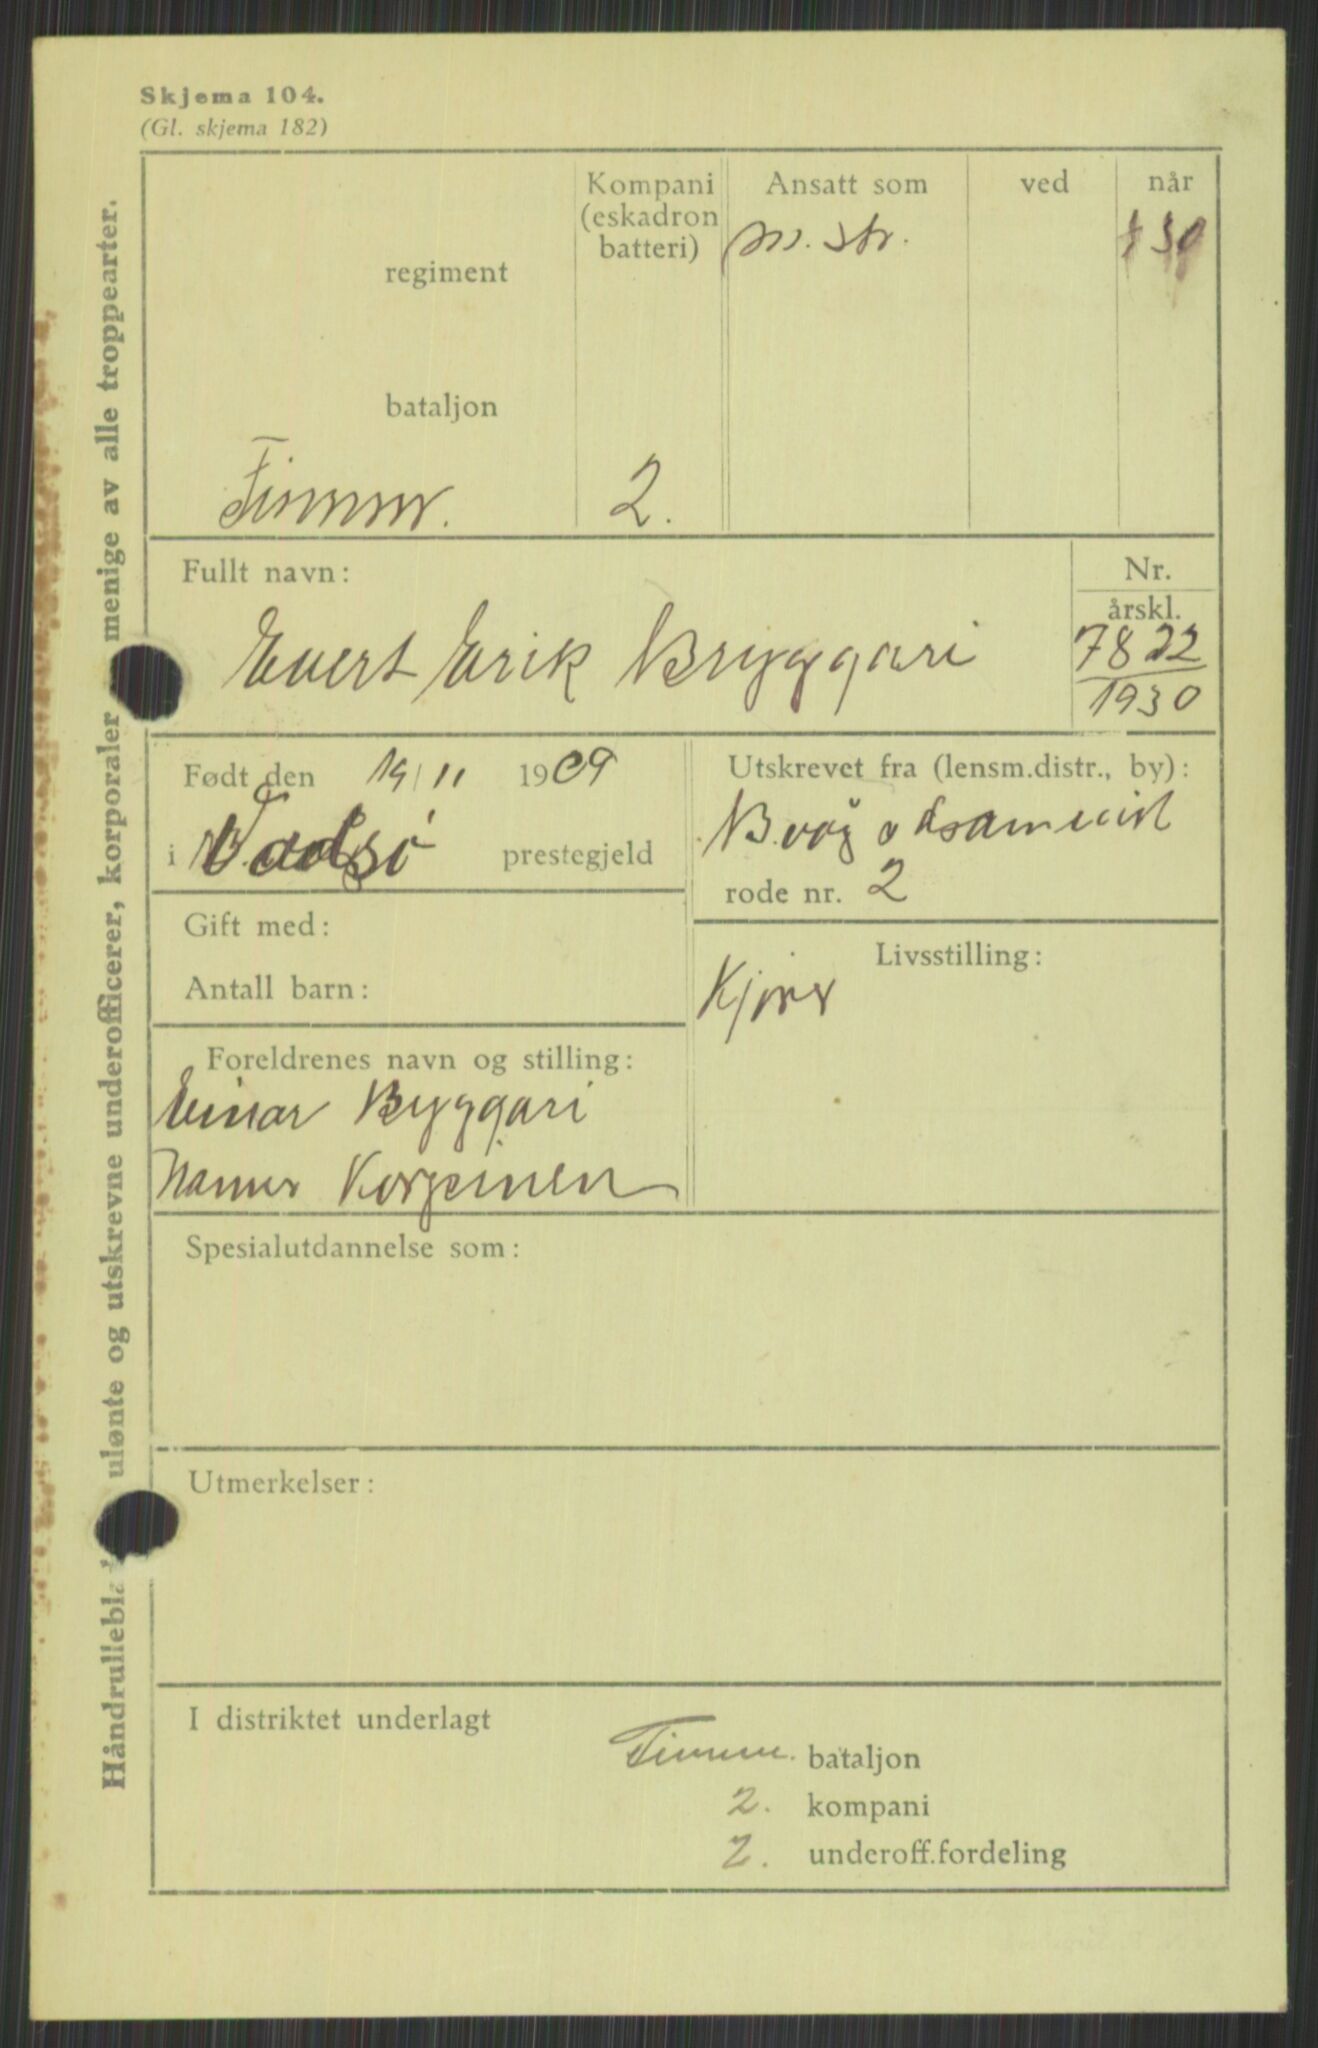 Skjema 104.
(Gl. skjema 182)
Håndrullebla ulønte og utskrevne underofficerer, korporaler menige av alle troppearter.
Kompani
(eskadron
batteri)
Ansatt som
ved
når
regiment
bataljon
2.
Fullt navn:
Evert Erik Bryggari
Nr.
årskl.
7822
1930
Født den 19/11 1909
i Vadsø prestegjeld
Utskrevet fra (lensm.distr., by):
rode nr. 2
Gift med:
Antall barn:
Livsstilling:
Foreldrenes navn og stilling:
Einar Byggari
Korpeinen
Spesialutdannelse som:
Utmerkelser:
I distriktet underlagt
bataljon
2. kompani
2. underoff.fordeling